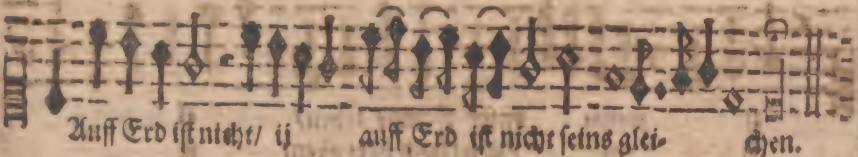 Auff Erd ist nicht/ ij auff Erd ist nicht seins glei- chen.